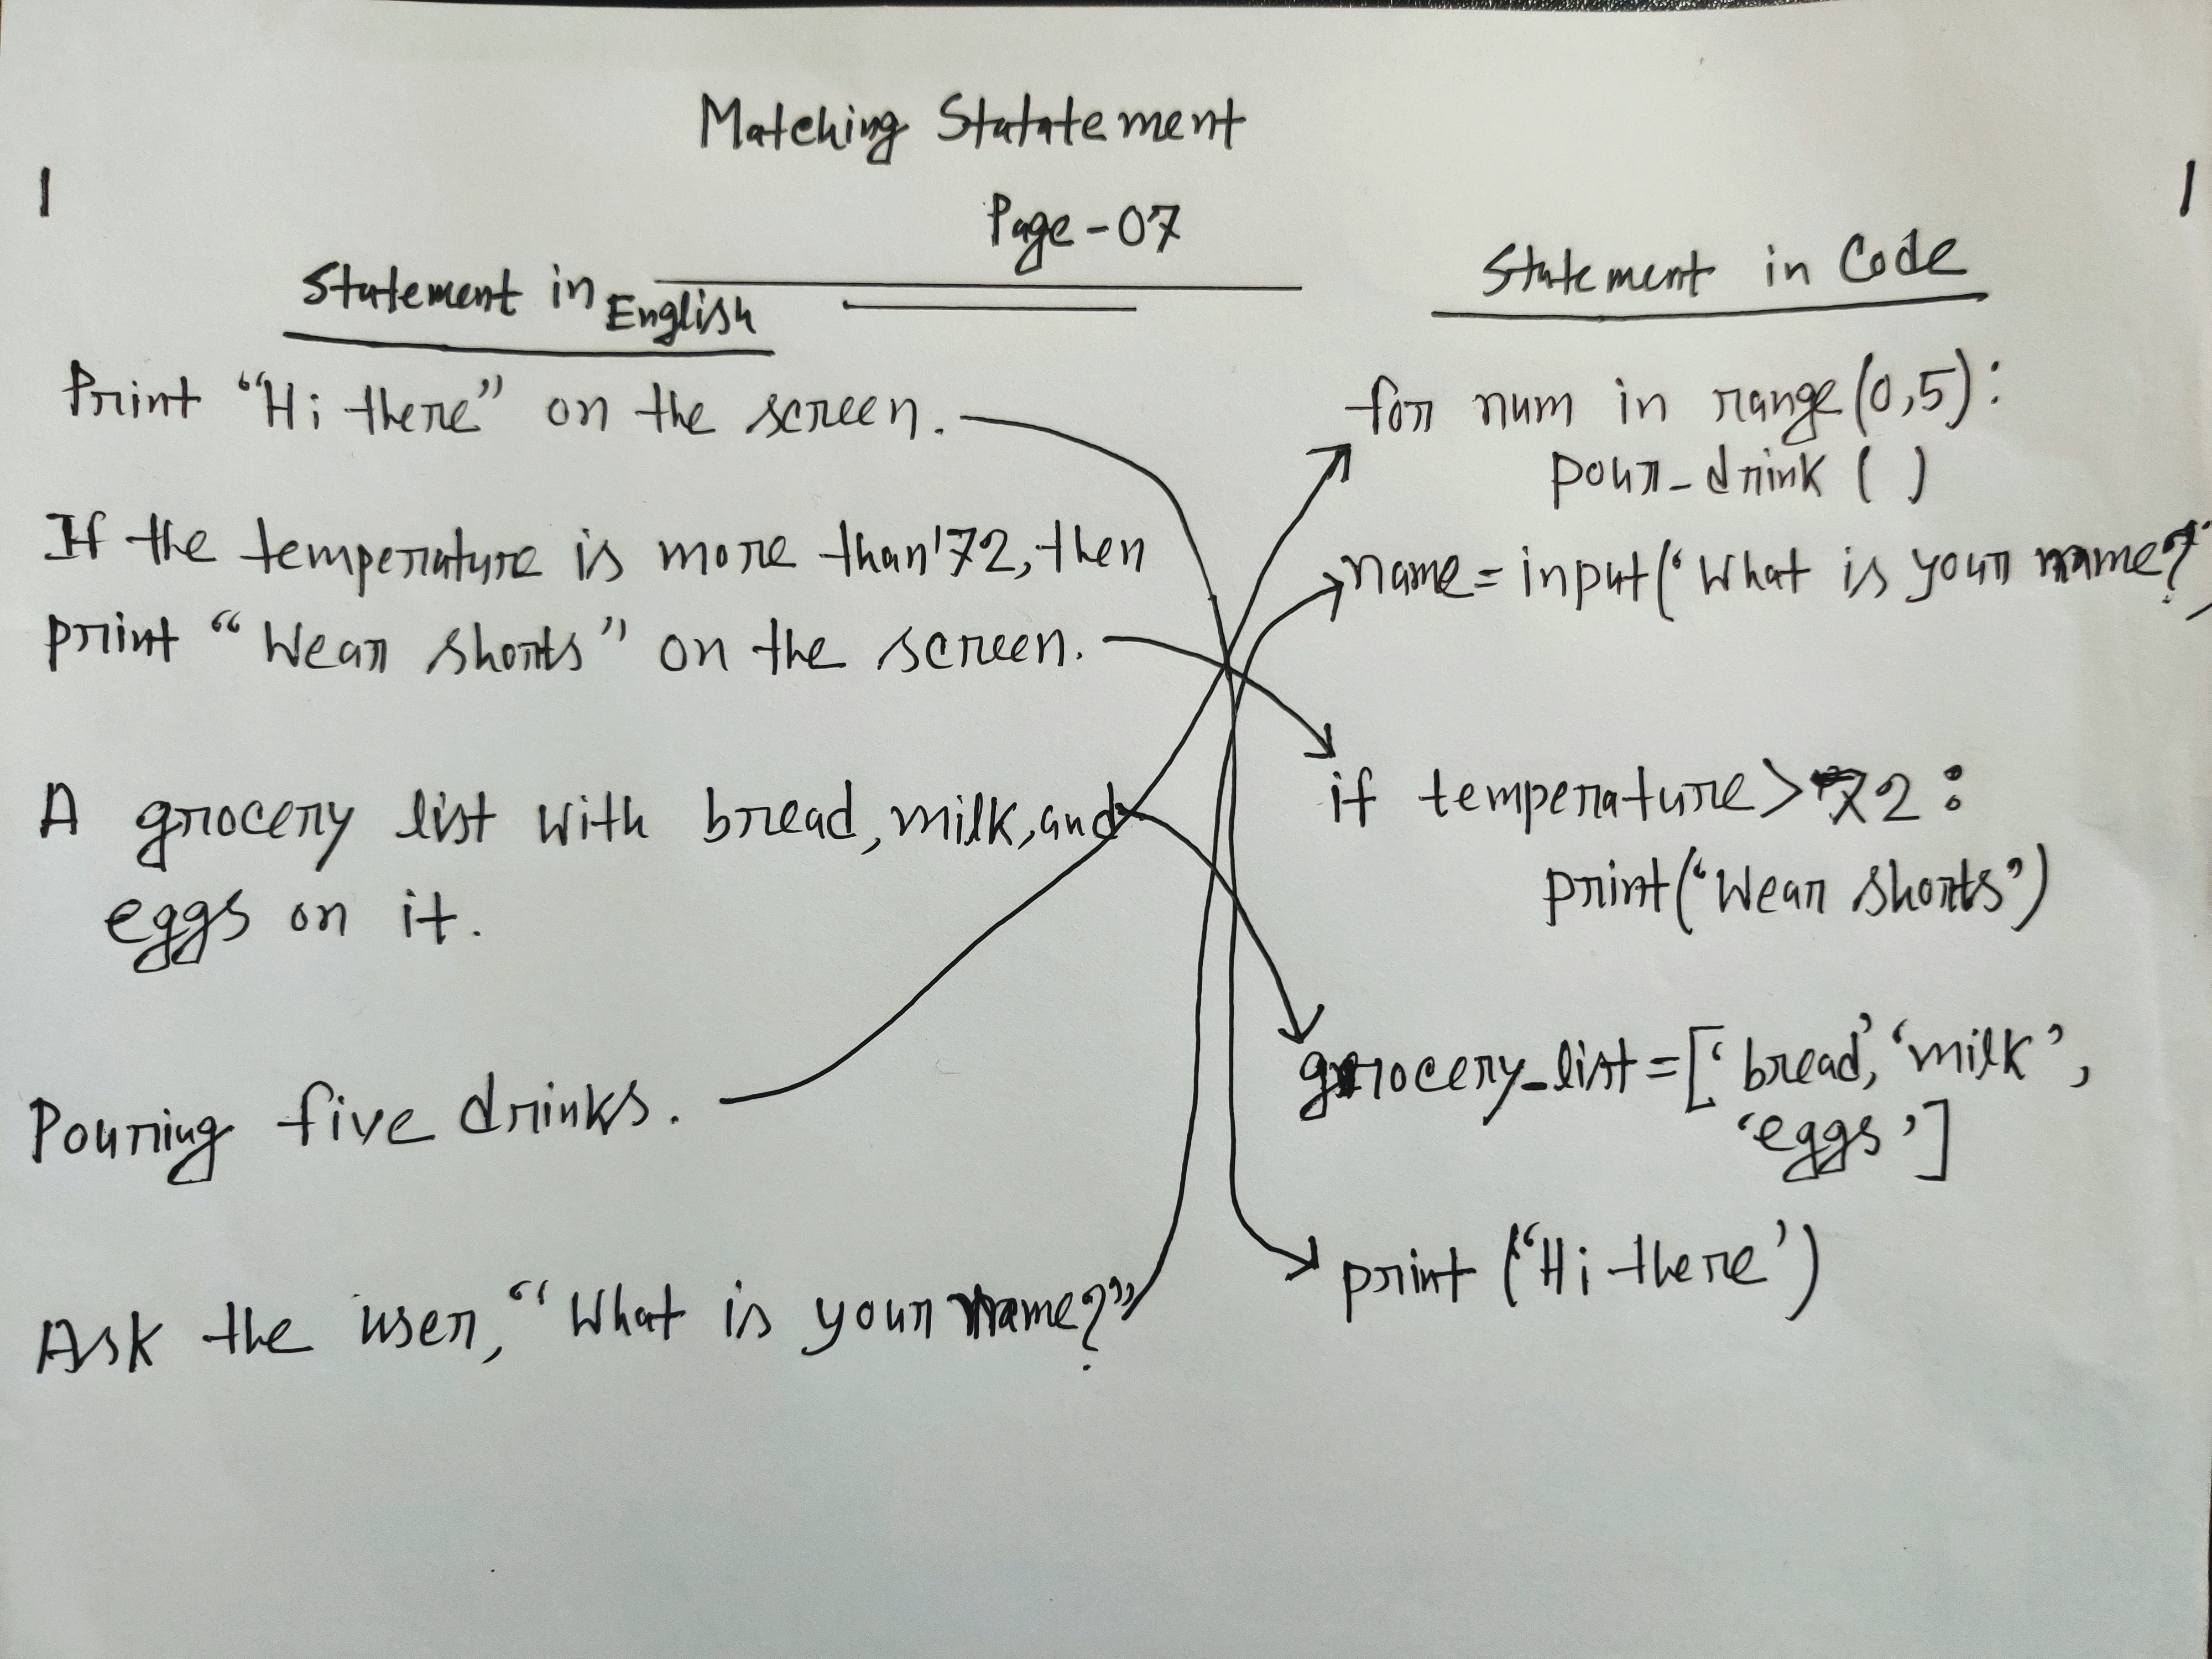 Matching Statatement
Page-07
Statement in English
Print “Hi there” on the screen.
If the temperature is more than '72, then
print “Wear shorts” on the screen.
A grocery list with bread, milk, and
eggs on it.
Pouring five drinks.
Ask the user, “What is your name?”
Statement in Code
for num in range(0,5):
pour_drink ( )
name = input(‘What is your name?’)
if temperature > 72:
print(‘Wear shorts’)
grocery_list = [‘bread’, ‘milk’,
‘eggs’]
print (‘Hi there’)